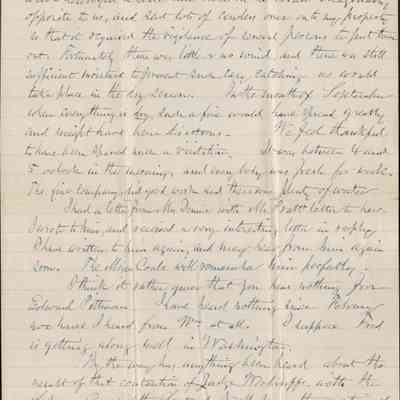 opposite to us, and sent lots of cinders over onto my property
so that it required the vigilance of several persons to put them
out. Fortunately there was little or no wind and there was still
sufficient moisture to prevent such easy catching as would
take place in the dry season. In the month of September
when everything is dry, such a fire would have spread greatly
and might have been disastrous. We feel thankful
to have been spared such a visitation. It was between 4 and
5 oclock in the morning, and every body was fresh for work.
The fire company did good work and there was plenty of water
I had a letter from Mr. with Mr. Pratt's letter to him.
I wrote to him, and received a very interesting letter in reply
I have written to him again, and may hear from him again
soon. The Misses Coale will remember him perfectly.
I think it rather queer that you hear nothing from
Edward Pittman. I have heard nothing since February
nor have I heard from Wm at all. I suppose Fred
is getting along well in Washington.
By the way has anything been heard about the
result of that contention of Judge with the